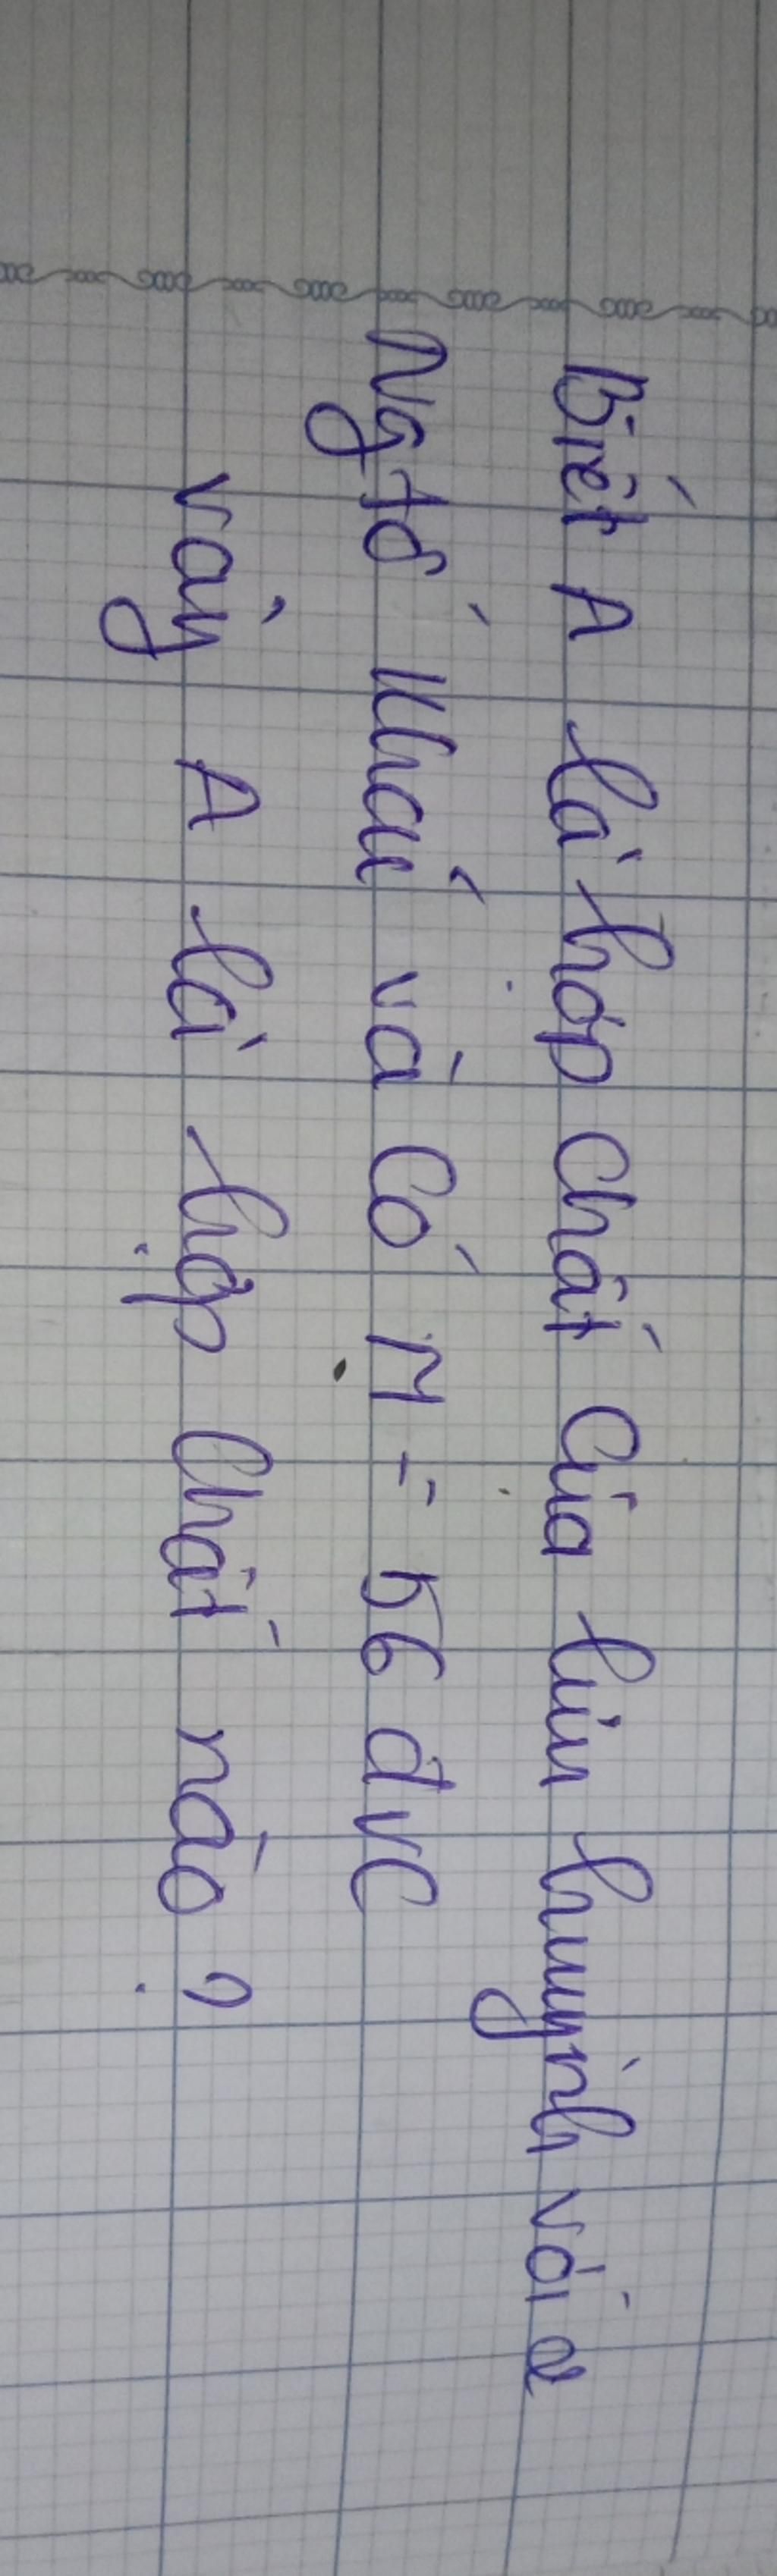 Biết A là hợp chất của lưu huỳnh với 2
Ng tố khác và có M = 56 đvC
vậy A là hợp chất nào?